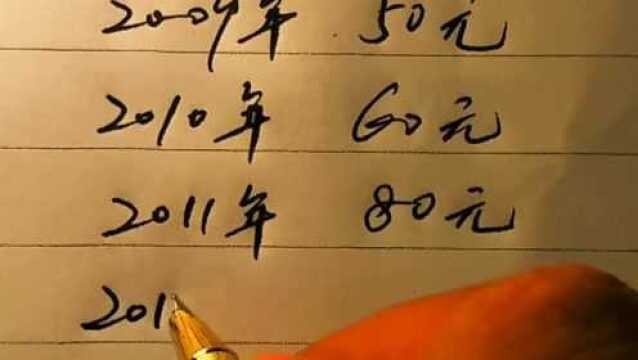 2009年 50元
2010年 60元
2011年 80元
201